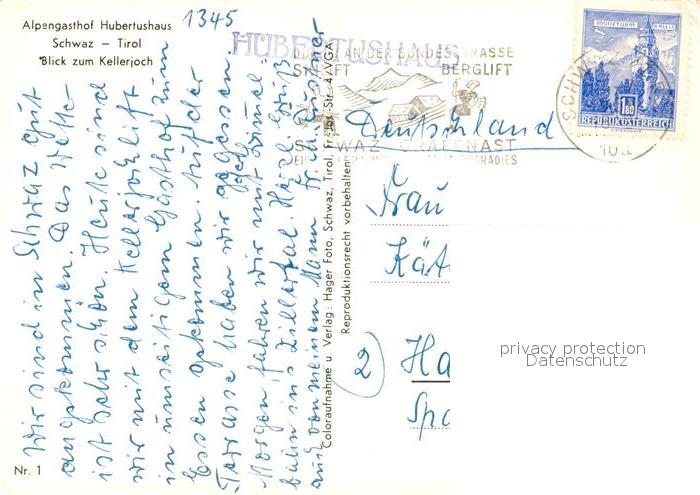 Alpengasthof Hubertushaus
Schwaz – Tirol
Blick zum Kellerjoch
1345
HUBERTUSHAUS
AN DER BUNDESSTRASSE
BERGLIFT
SCHWAZ GRAFENAST
MÜNZTURM HALL
1.80
REPUBLIK ÖSTERREICH
Wir sind in Schwaz gut
angekommen. Das Wette-
ist sehr schön. Heute sind
wir mit dem Kellerjochlift
in unseitigem Gasthof zum
Essen gekommen. Auf der
Terrasse haben wir gegessen
Morgen fahren wir mit
bahn ins Zillertal. Herzl. Gruß
auch von meinem Mann Fr.
Coloraufnahme u. Verlag: Hager Foto, Schwaz, Tirol, Fr. Jos.-Str. 4/VGA
Reproduktionsrecht vorbehalten
Deutschland
Frau
Kät
2) Ha
Spa
Nr. 1
privacy protection
Datenschutz